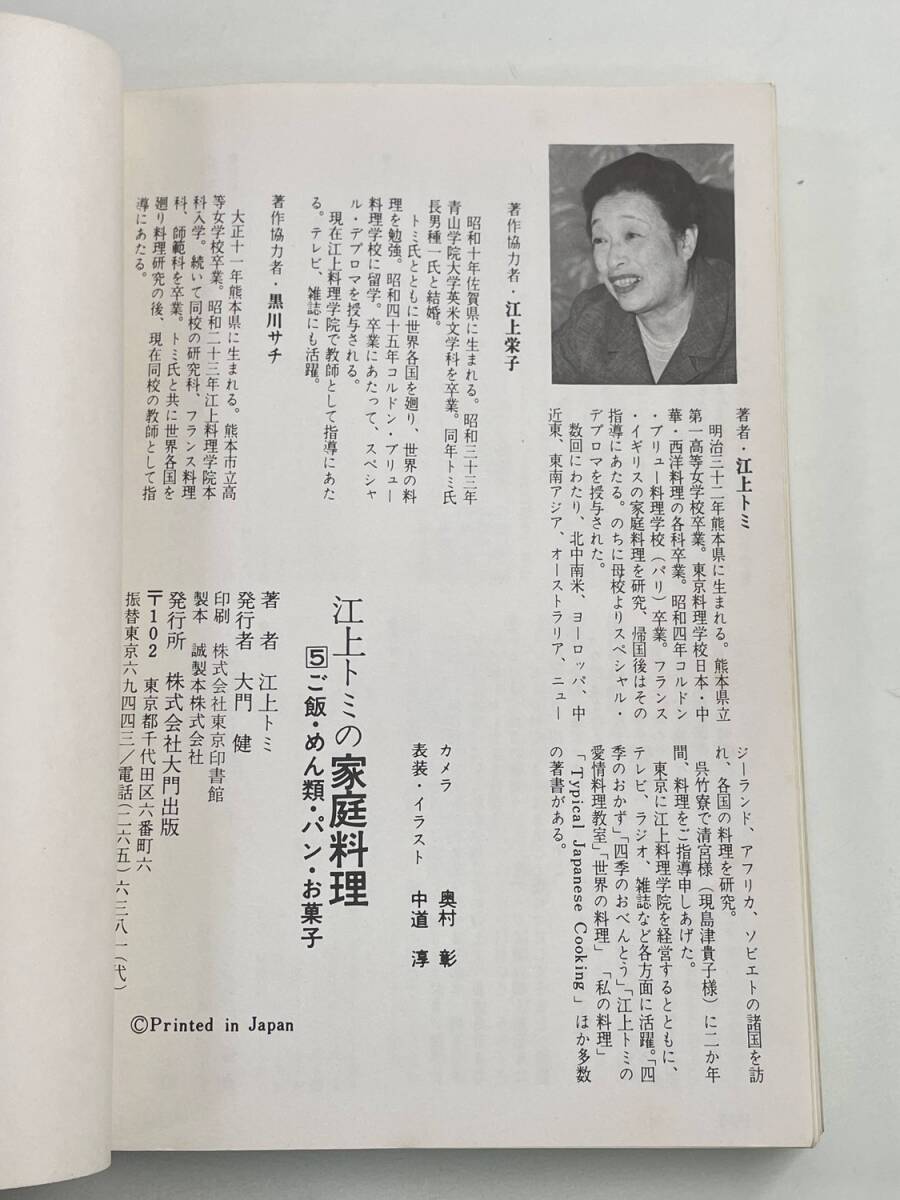 著者・江上トミ
明治三十二年熊本県に生まれる。熊本県立
第一高等女学校卒業。東京料理学校日本・中
華・西洋料理の各科卒業。昭和四年コルドン
・ブリュー料理学校（パリ）卒業。フランス
・イギリスの家庭料理を研究、帰国後はその
指導にあたる。のちに母校よりスペシャル・
デプロマを授与された。
数回にわたり、北中南米、ヨーロッパ、中
近東、東南アジア、オーストラリア、ニュー
ジーランド、アフリカ、ソビエトの諸国を訪
れ、各国の料理を研究。
呉竹寮で清宮様（現島津貴子様）に二か年
間、料理をご指導申しあげた。
東京に江上料理学院を経営するとともに、
テレビ、ラジオ、雑誌など各方面に活躍。「四
季のおかず」「四季のおべんとう」「江上トミの
愛情料理教室」「世界の料理」「私の料理」
「Typical Japanese Cooking」ほか多数
の著書がある。
著作協力者・江上栄子
昭和十年佐賀県に生まれる。昭和三十三年
青山学院大学英米文学科を卒業。同年トミ氏
長男種一氏と結婚。
トミ氏とともに世界各国を廻り、世界の料
理を勉強。昭和四十五年コルドン・ブリュー
料理学校に留学。卒業にあたって、スペシャ
ル・デプロマを授与される。
現在江上料理学院で教師として指導にあた
る。テレビ、雑誌にも活躍。
著作協力者・黒川サチ
大正十一年熊本県に生まれる。熊本市立高
等女学校卒業。昭和二十三年江上料理学院本
科入学。続いて同校の研究科、フランス料理
科、師範科を卒業。トミ氏と共に世界各国を
廻り料理研究の後、現在同校の教師として指
導にあたる。
カメラ 奥村 彰
表装・イラスト 中道 淳
江上トミの家庭料理
5 ご飯・めん類・パン・お菓子
著者 江上トミ
発行者 大門 健
印刷 株式会社東京印書館
製本 誠製本株式会社
発行所 株式会社大門出版
〒102 東京都千代田区六番町六
振替東京六九四四三／電話（二六五）六三八一（代）
©Printed in Japan